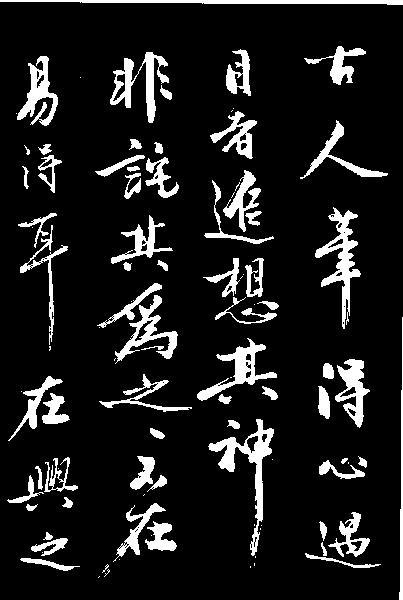 古人筆得心遇
目者追想其神
非詫其為之〻不在
易得耳在興之